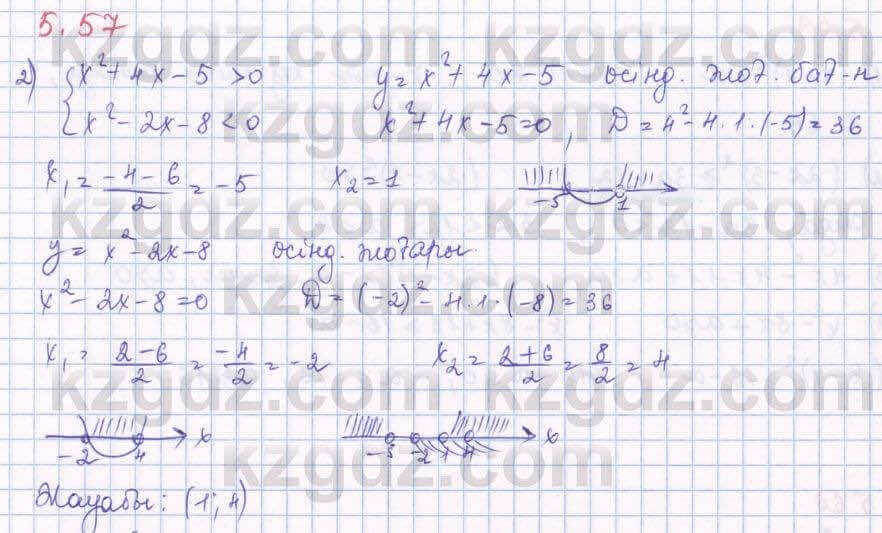 5.57
2) { x² + 4x - 5 > 0 y = x² + 4x - 5 осінд. жоғ. бағ-н
x² - 2x - 8 < 0 x² + 4x - 5 = 0, D = 4² - 4·1·(-5) = 36
x₁ = (-4 - 6)/2 = -5 x₂ = 1 -5 1
y = x² - 2x - 8 осінд. жоғары
x² - 2x - 8 = 0 D = (-2)² - 4·1·(-8) = 36
x₁ = (2 - 6)/2 = -4/2 = -2 x₂ = (2 + 6)/2 = 8/2 = 4
-2 4 x -5 -2 1 4 x
Жауабы: (1; 4)
kzgdz.com